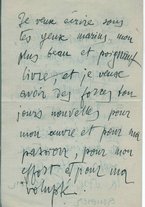 Je veux écrire sous
les yeux marins mon
plus beau et poignant
livre, et je veux
avoir des forces
jours nouvelles pour
mon œuvre et pour ma
passion, pour mon
effort et pour ma
volupté.